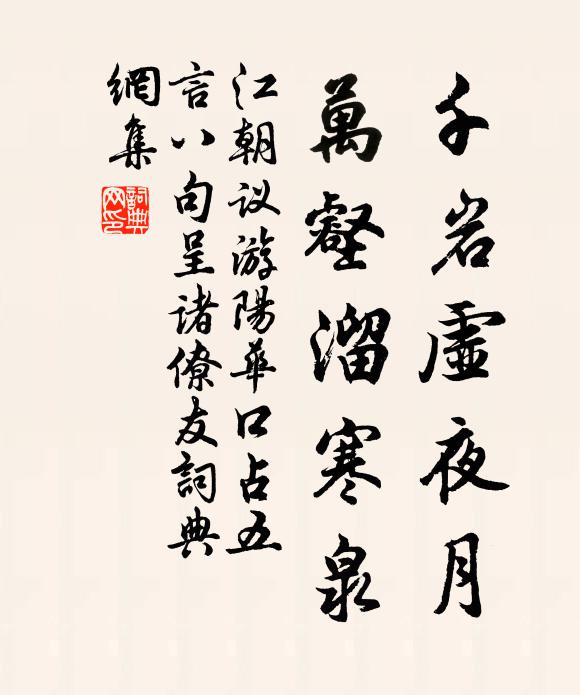 千岩虛夜月
萬壑溜寒泉
江朝议游陽華口占五
言八句呈诸僚友詞典
網集
詞典
网印